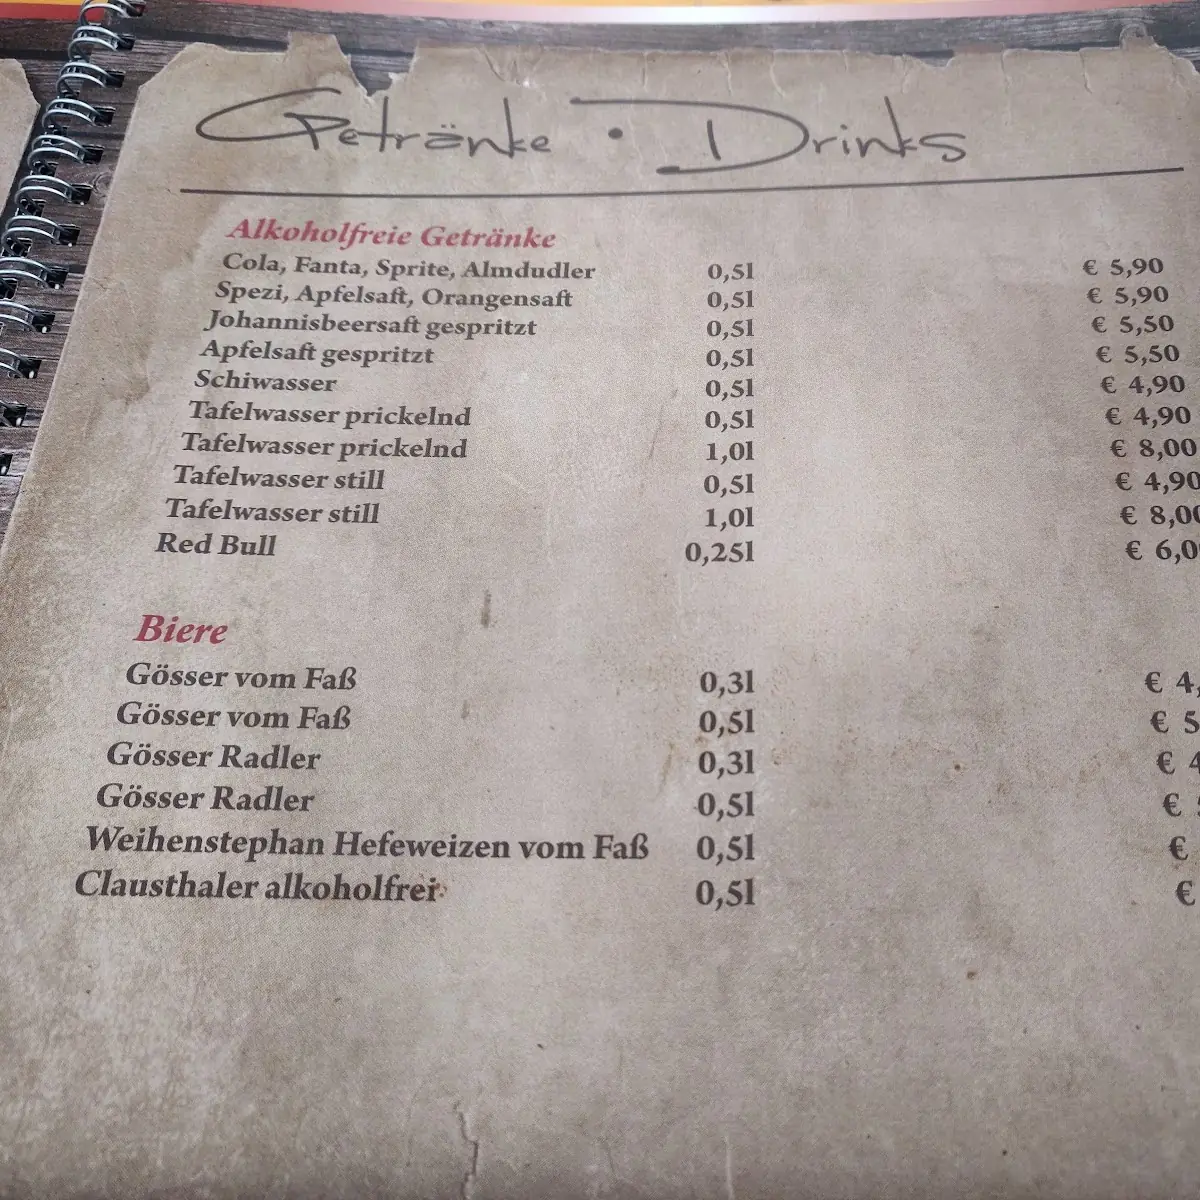 Getränke • Drinks
Alkoholfreie Getränke
Cola, Fanta, Sprite, Almdudler 0,5l € 5,90
Spezi, Apfelsaft, Orangensaft 0,5l € 5,90
Johannisbeersaft gespritzt 0,5l € 5,50
Apfelsaft gespritzt 0,5l € 5,50
Schiwasser 0,5l € 4,90
Tafelwasser prickelnd 0,5l € 4,90
Tafelwasser prickelnd 1,0l € 8,00
Tafelwasser still 0,5l € 4,90
Tafelwasser still 1,0l € 8,00
Red Bull 0,25l € 6,0
Biere
Gösser vom Faß 0,3l € 4,
Gösser vom Faß 0,5l € 5
Gösser Radler 0,3l € 4
Gösser Radler 0,5l €
Weihenstephan Hefeweizen vom Faß 0,5l €
Clausthaler alkoholfrei 0,5l €